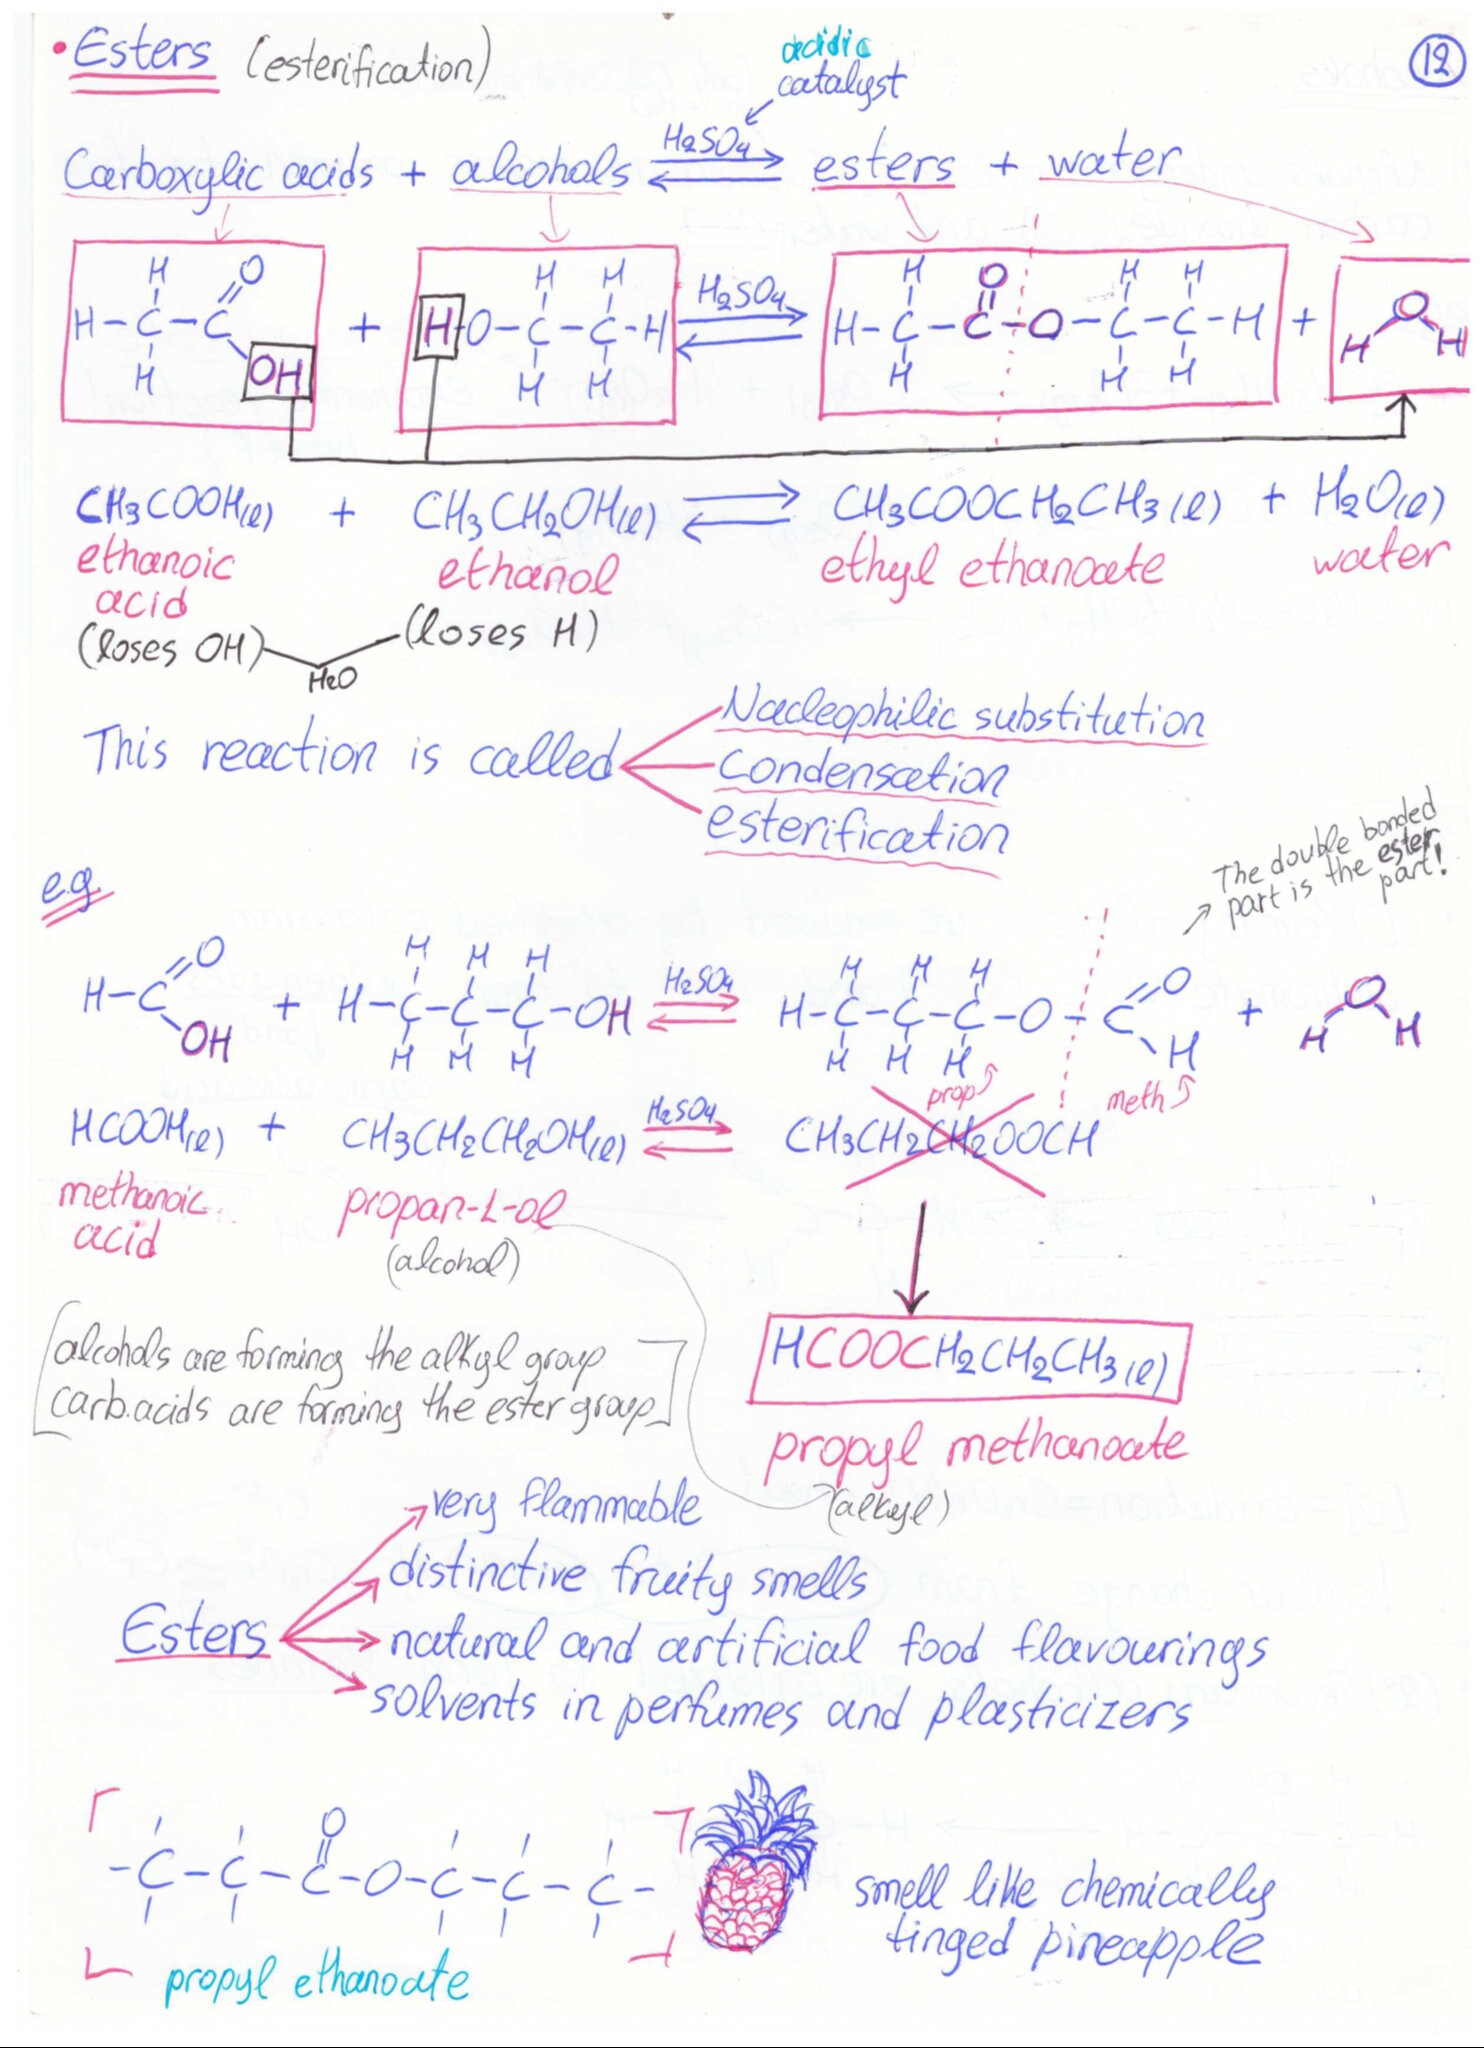 • Esters (esterification)
12
acidic
catalyst
Carboxylic acids + alcohols H2SO4 ⇌ esters + water
H H H H O H H
H-C-C=O + H-O-C-C-H H2SO4 ⇌ H-C-C-O-C-C-H + H O H
H OH H H H H H
CH3COOH(l) + CH3CH2OH(l) ⇌ CH3COOCH2CH3(l) + H2O(l)
ethanoic acid ethanol ethyl ethanoate water
(loses OH) H2O (loses H)
This reaction is called
Nucleophilic substitution
Condensation
esterification
The double bonded
part is the ester
part!
e.g
O H H H H H H O
H-C + H-C-C-C-OH H2SO4 ⇌ H-C-C-C-O-C + H O H
OH H H H H H H H
prop meth
HCOOH(l) + CH3CH2CH2OH(l) H2SO4 ⇌ CH3CH2CH2OOCH
methanoic acid propan-1-ol
(alcohol)
HCOOCH2CH2CH3(l)
propyl methanoate
(alkyl)
[alcohols are forming the alkyl group
carb.acids are forming the ester group]
Esters
very flammable
distinctive fruity smells
natural and artificial food flavourings
solvents in perfumes and plasticizers
O
-C-C-C-O-C-C-C-
propyl ethanoate
smell like chemically
tinged pineapple